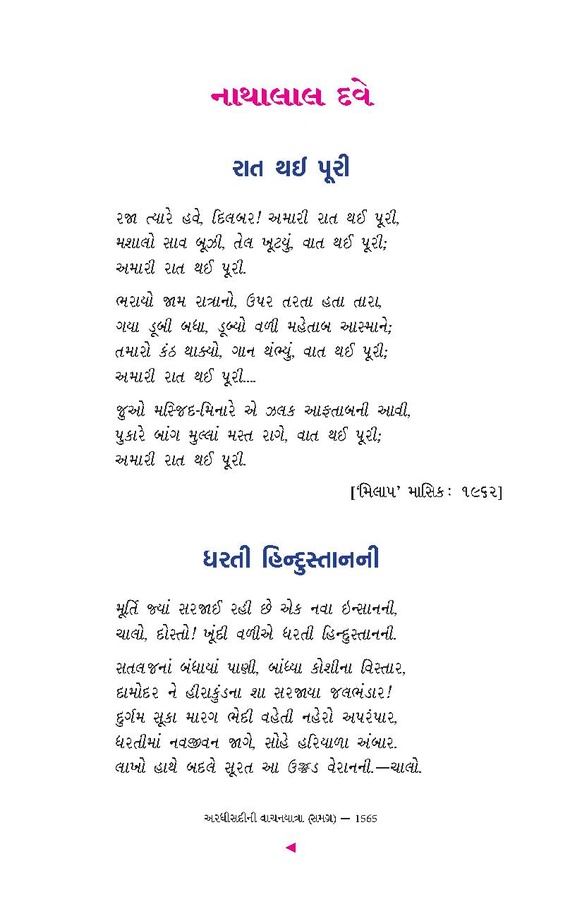 નાથાલાલ દવે
રાત થઈ પૂરી
રજા ત્યારે હવે, દિલબર! અમારી રાત થઈ પૂરી,
મશાલો સાવ બૂઝી, તેલ ખૂટયું, વાત થઈ પૂરી;
અમારી રાત થઈ પૂરી.
ભરાયો જામ રાત્રાનો, ઉપર તરતા હતા તારા,
ગયા ડૂબી બધા, ડૂબ્યો વળી મહેતાબ આસ્માને;
તમારો કંઠ થાક્યો, ગાન થંભ્યું, વાત થઈ પૂરી;
અમારી રાત થઈ પૂરી....
જુઓ મસ્જિદ-મિનારે એ ઝલક આફતાબની આવી,
પુકારે બાંગ મુલ્લાં મસ્ત રાગે, વાત થઈ પૂરી;
અમારી રાત થઈ પૂરી.
['મિલાપ' માસિક: ૧૯૬૨]
ધરતી હિન્દુસ્તાનની
મૂર્તિ જ્યાં સરજાઈ રહી છે એક નવા ઇન્સાનની,
ચાલો, દોસ્તો! ખૂંદી વળીએ ધરતી હિન્દુસ્તાનની.
સતલજનાં બંધાયાં પાણી, બાંધ્યા કોશીના વિસ્તાર,
દામોદર ને હીરાકુંડના શા સરજાયા જલભંડાર!
દુર્ગમ સૂકા મારગ ભેદી વહેતી નહેરો અપરંપાર,
ધરતીમાં નવજીવન જાગે, સોહે હરિયાળા અંબાર.
લાખો હાથે બદલે સૂરત આ ઉજ્જડ વેરાનની.—ચાલો.
અરધીસદીની વાચનયાત્રા (સમગ્ર) — 1565